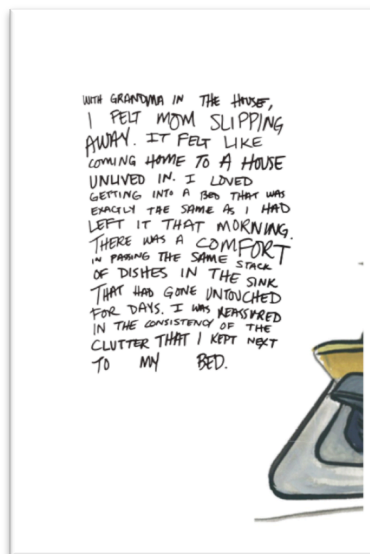 WITH GRANDMA IN THE HOUSE,
I FELT MOM SLIPPING
AWAY. IT FELT LIKE
COMING HOME TO A HOUSE
UNLIVED IN. I LOVED
GETTING INTO A BED THAT WAS
EXACTLY THE SAME AS I HAD
LEFT IT THAT MORNING.
THERE WAS A COMFORT
IN PASSING THE SAME STACK
OF DISHES IN THE SINK
THAT HAD GONE UNTOUCHED
FOR DAYS. I WAS REASSURED
IN THE CONSISTENCY OF THE
CLUTTER THAT I KEPT NEXT
TO MY BED.